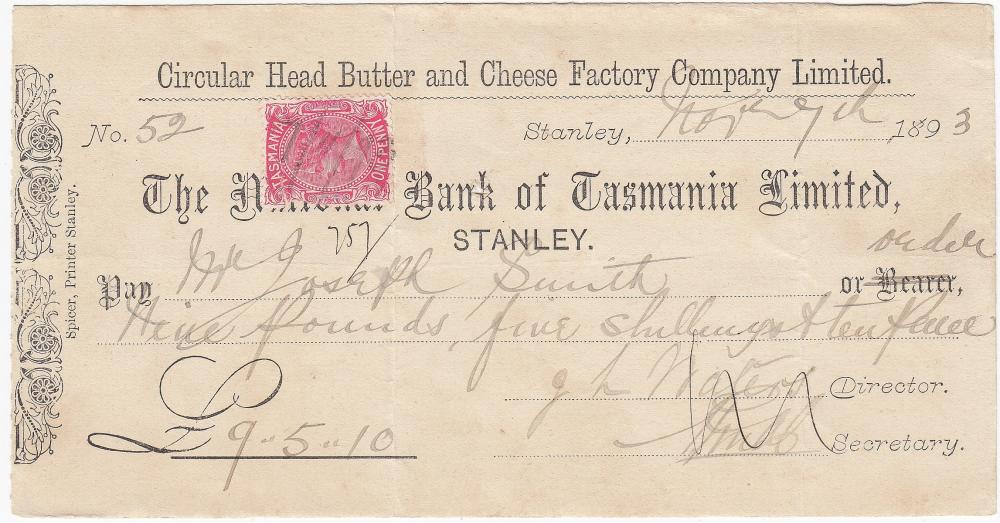 Circular Head Butter and Cheese Factory Company Limited.
No. 52
Stanley, Nov 9th 1893
TASMANIA
ONE PENNY
The National Bank of Tasmania Limited,
757
STANLEY.
order
Pay Mr Joseph Smith or Bearer,
Nine Pounds, five shillings & ten pence
Director.
£9"5"10
Secretary.
Spicer, Printer Stanley.